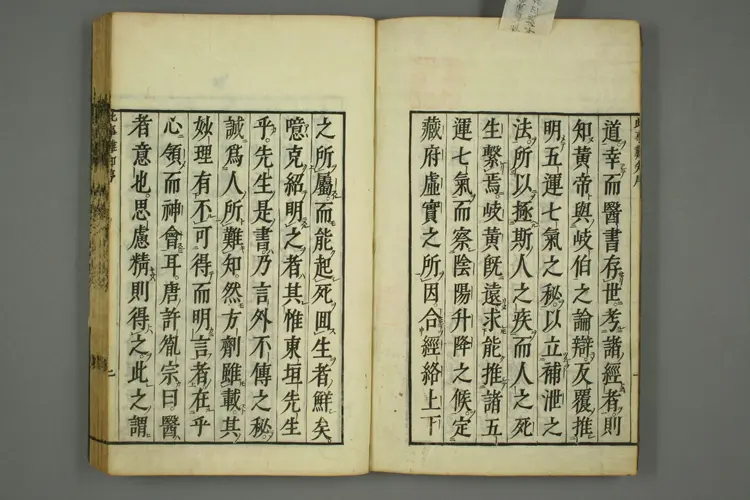 道幸而醫書存世考諸經者則
知黃帝與岐伯之論辯反覆推
明五運七氣之秘以立補泄之
法所以極斯人之疾而人之死
生繫焉岐黃旣遠求能推諸五
運七氣而察陰陽升降之候定
藏府虛實之所因合經絡上下
之所屬而能起死囬生者鮮矣
噫克紹明之者其惟東垣先生
乎先生是書乃言外不傳之秘
誠爲人所難知然方劑雖載其
妙理有不可得而明言者在乎
心領而神會耳唐許胤宗曰醫
者意也思慮精則得之此之謂